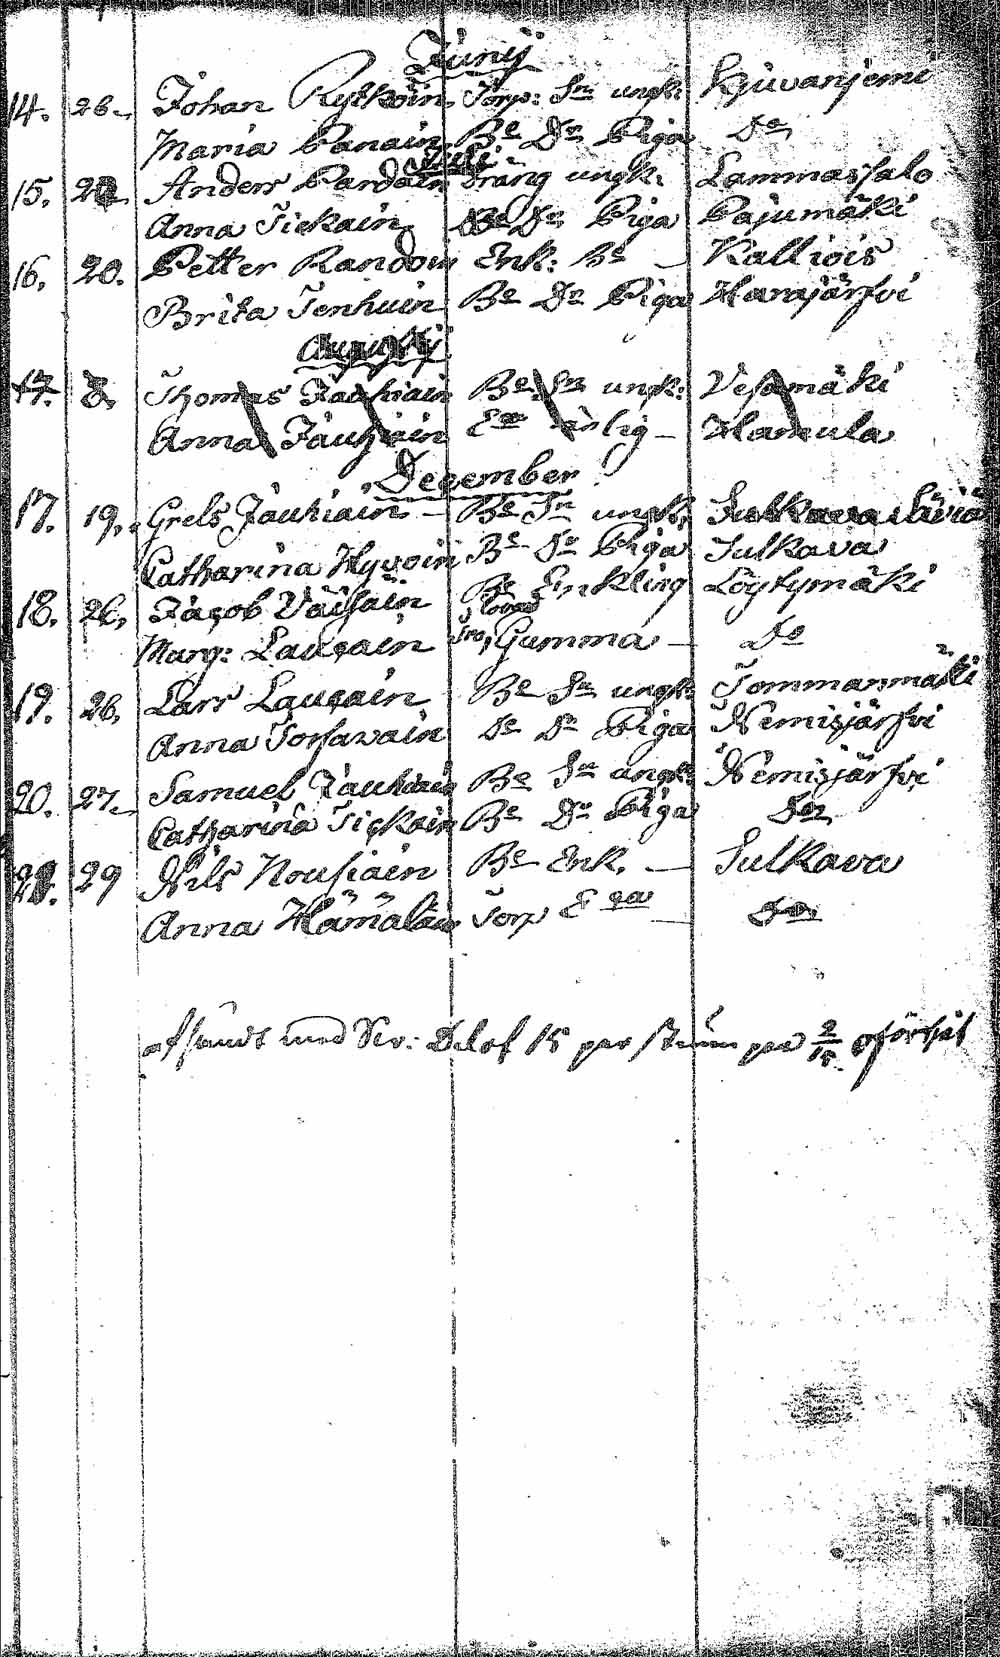 Junij
14. 26. Johan Rytköin Torp: Sn ungk:
Maria Panain Be Dr Piga Do
15. Anders Pardain Dräng ungk: Lammassalo
Anna Tickain Be Dr Piga Pajumäki
16. 20. Petter Randoin Enk: Be Kalliois
Brita Tenhuin Be Dr Piga Harajärfvi
Augustij
17. 8. Thomas Jauhiain Be Sn ungk: Vesamäki
Anna Jauhiain Hamula
December
17. 19. Grels Jauhiain Be Sn ungk. Sulkava
Catharina Hyvöin Be Dr Piga Sulkava
18. 26. Jacob Väisäin Be Enkling Löytymäki
Marg: Laucain Gumma Do
19. 26. Lars Laucain Be Sn ungk: Tommarmäki
Anna Torfwain Do Dr Piga Nemisjärfvi
20. 27. Samuel Jauhiain Be Sn ungk: Nemisjärfvi
Catharina Tickain Be Dr Piga Do
29 Nils Nousiain Be Enk. Sulkava
Anna Hämäläin Torp Do
med 15 2/15